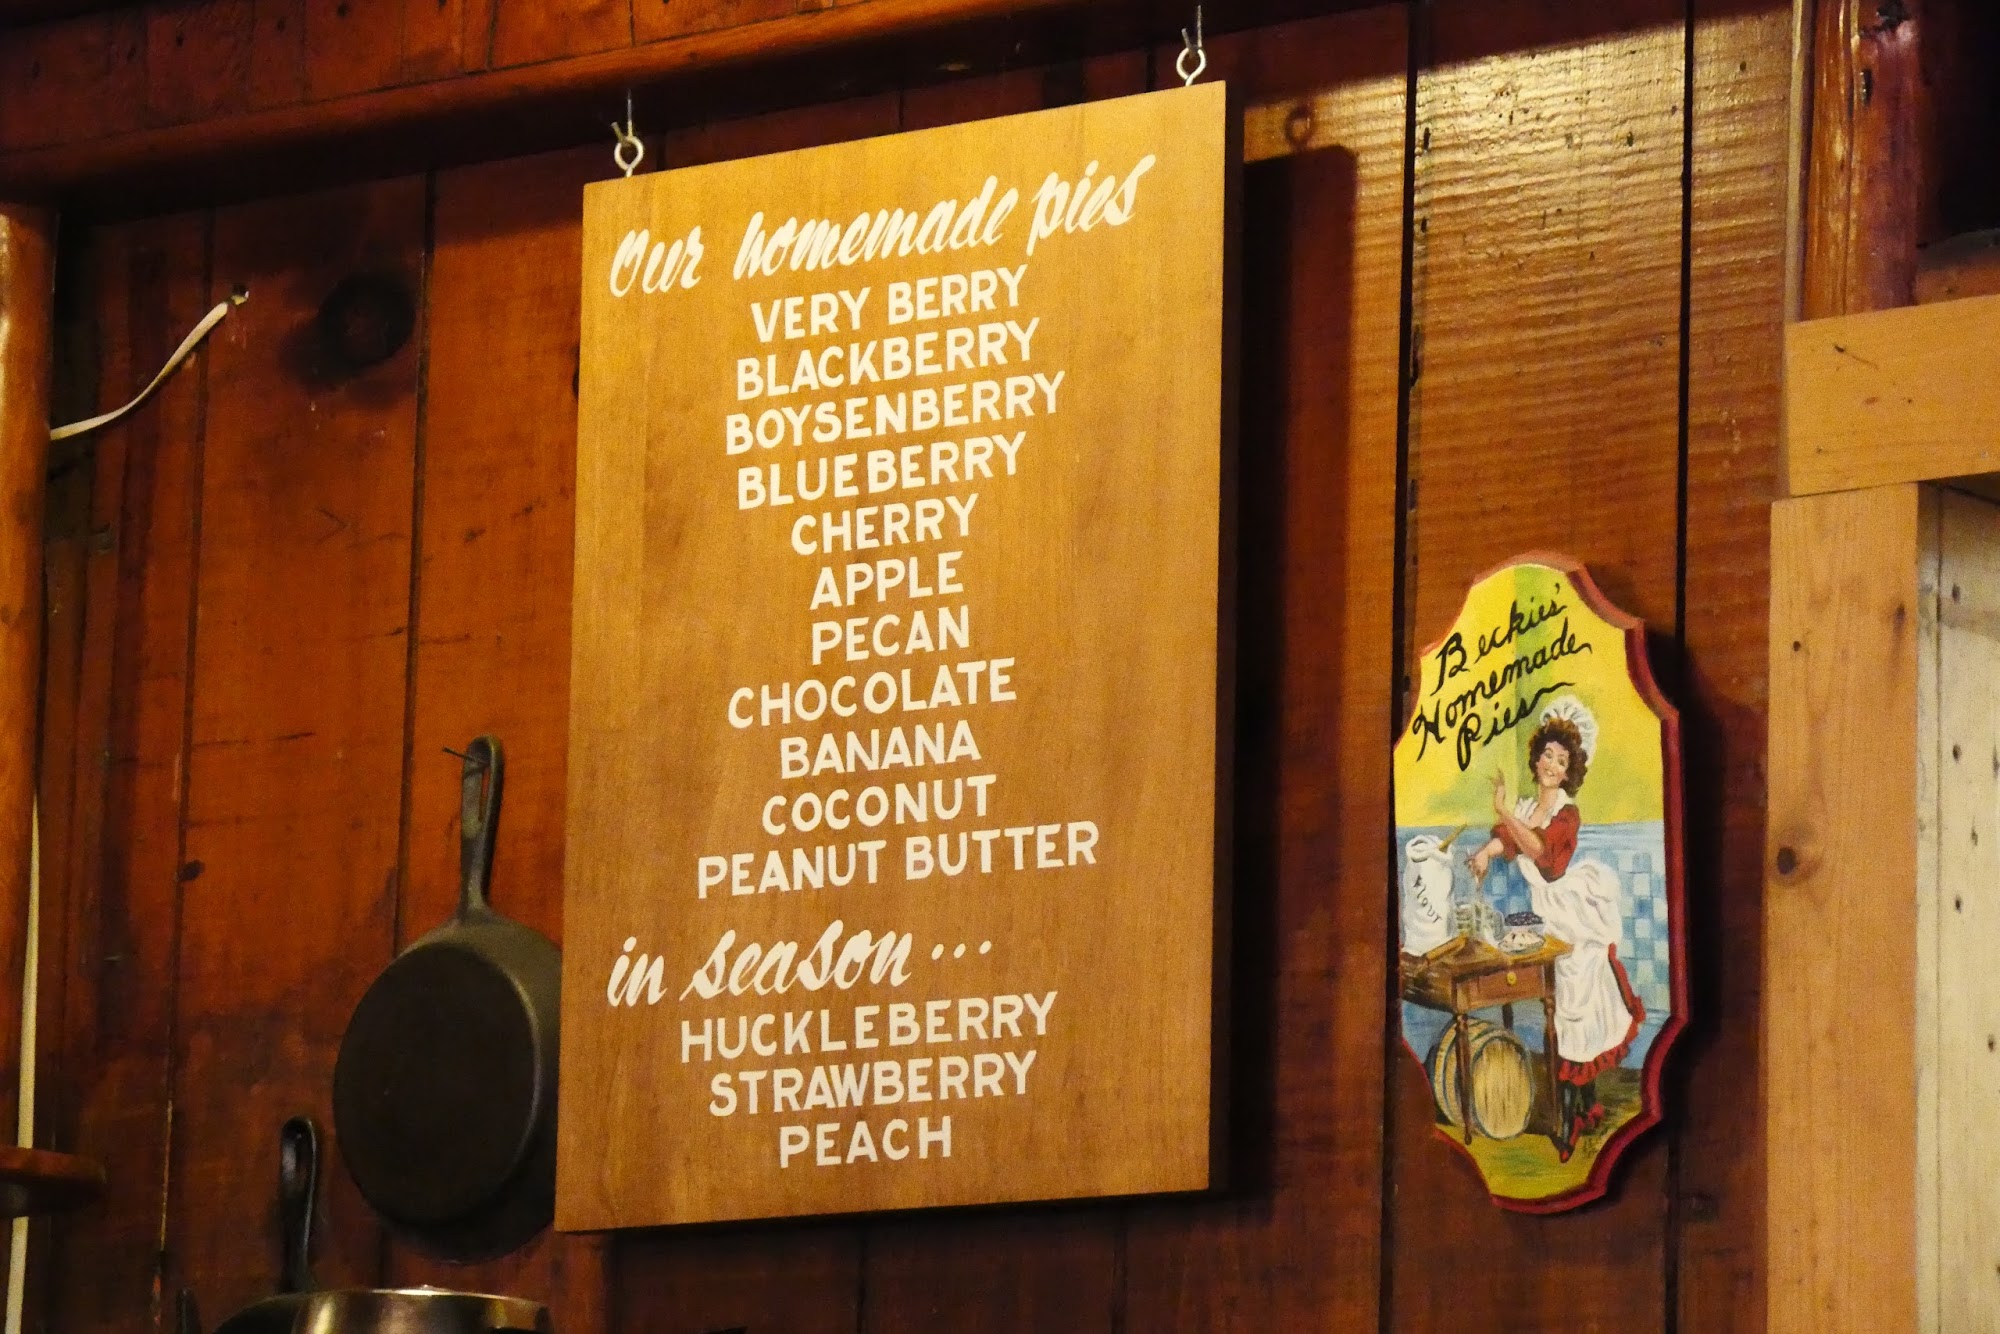 Our homemade pies
VERY BERRY
BLACKBERRY
BOYSENBERRY
BLUEBERRY
CHERRY
APPLE
PECAN
CHOCOLATE
BANANA
COCONUT
PEANUT BUTTER
in season...
HUCKLEBERRY
STRAWBERRY
PEACH
Beckies'
Homemade
Pies
FLOUR